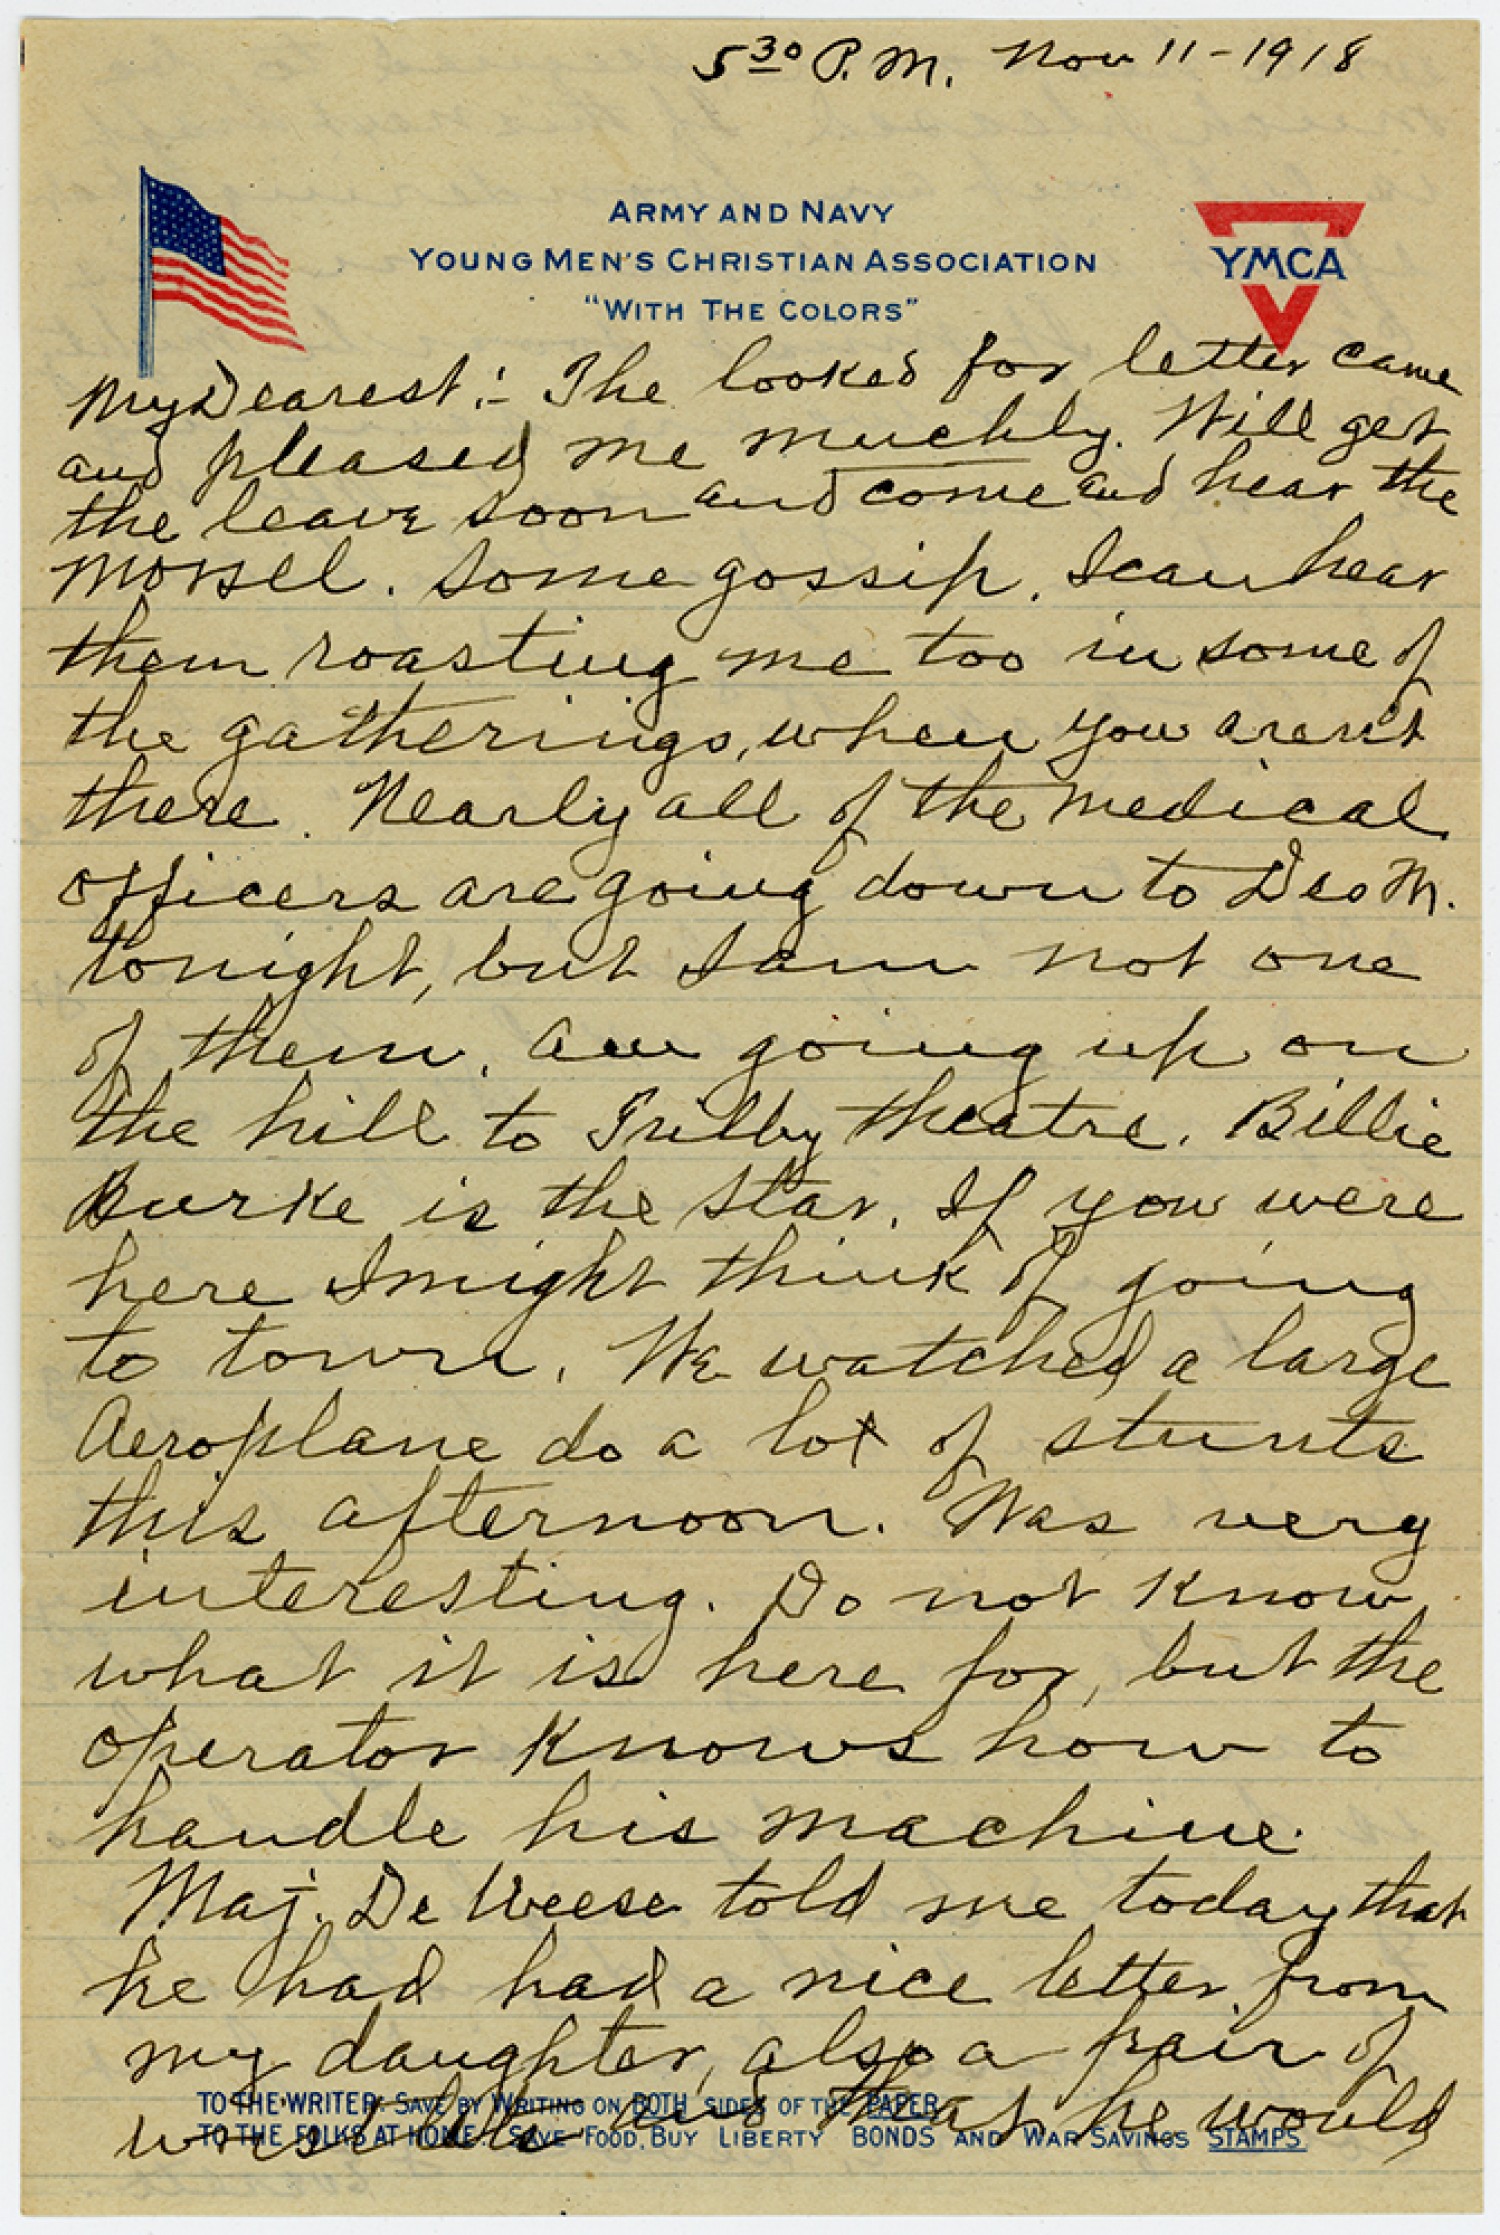 5 30 P.M. Nov 11-1918
ARMY AND NAVY
YOUNG MEN'S CHRISTIAN ASSOCIATION
"WITH THE COLORS"
YMCA
My Dearest:- The looked for letter came
and pleased me muchly. Will get
the leave soon and come and hear the
morsel. Some gossip. I can hear
them roasting me too in some of
the gatherings, when you aren't
there. Nearly all of the medical
officers are going down to Des M.
tonight, but I am not one
of them. Am going up on
the hill to Trilby theatre. Billie
Burke is the star. If you were
here I might think of going
to town. We watched a large
Aeroplane do a lot of stunts
this afternoon. Was very
interesting. Do not know
what it is here for, but the
operator knows how to
handle his machine.
Maj. De Weese told me today that
he had had a nice letter from
my daughter, also a pair of
wristlets and that he would
TO THE WRITER: SAVE BY WRITING ON BOTH SIDES OF THE PAPER
TO THE FOLKS AT HOME: SAVE FOOD, BUY LIBERTY BONDS AND WAR SAVINGS STAMPS